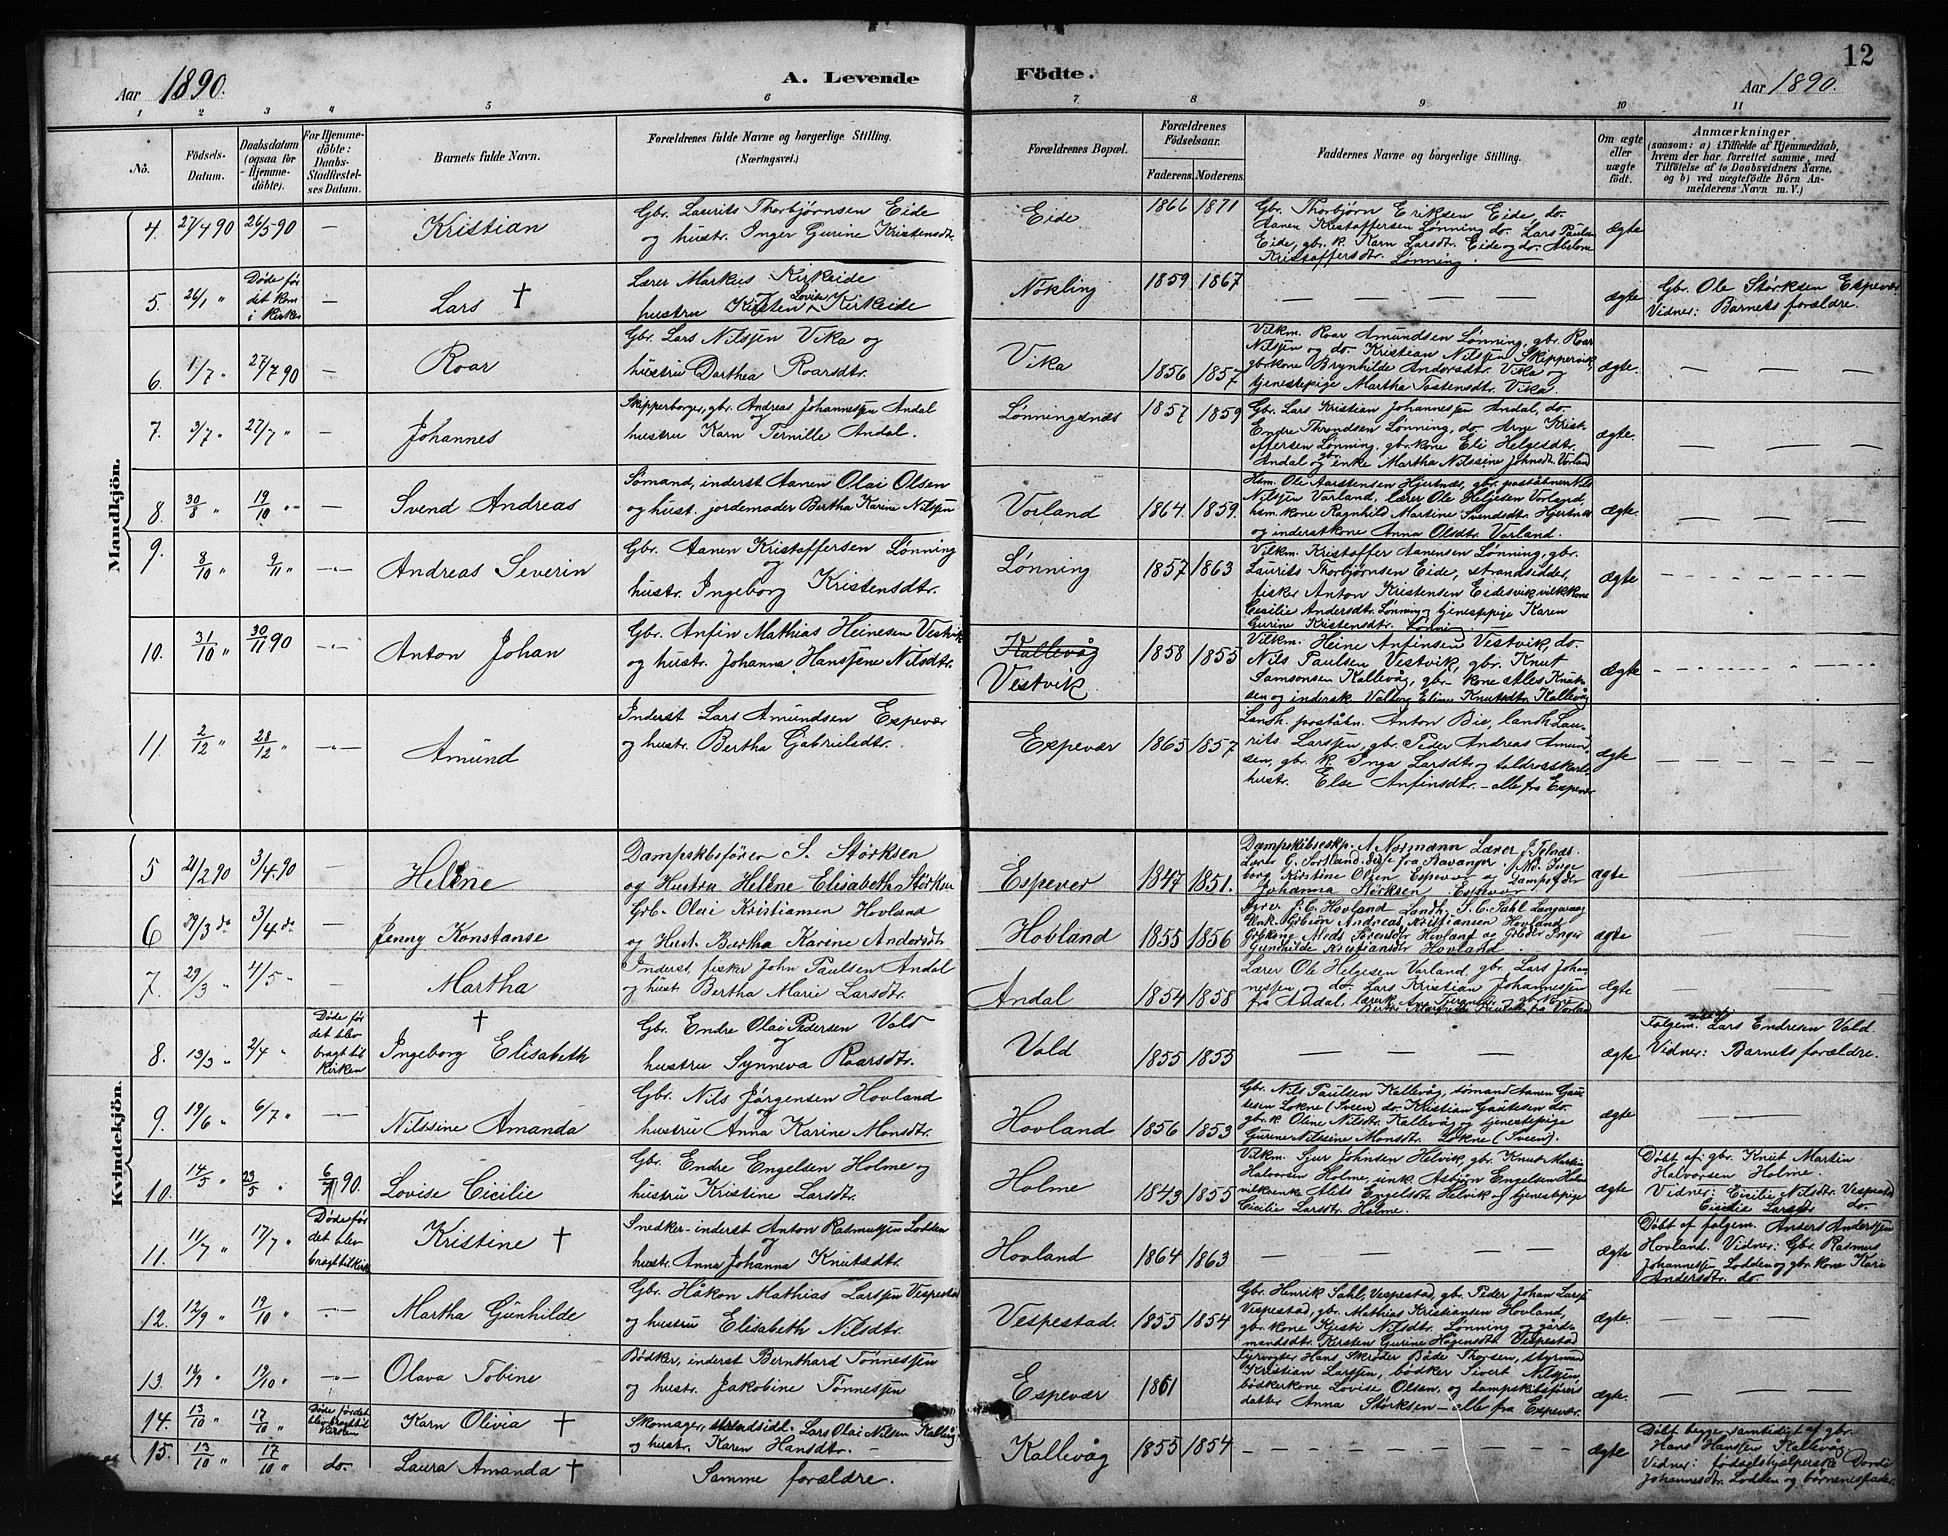 11
12
Aar 1890.
A. Levende
Födte.
Aar 1890.
1 2 3 4 5 6 7 8 9 10 11
No.
Födsels-
Datum.
Daabsdatum
(ogsaa for
Hjemme-
döbte).
For Hjemme-
döbte:
Daabs-
Stadfæstel-
ses Datum.
Barnets fulde Navn.
Forældrenes fulde Navne og borgerlige Stilling.
(Næringsvei.)
Forældrenes Bopæl.
Forældrenes
Födselsaar.
Faderens. Moderens.
Faddernes Navne og borgerlige Stilling.
Om ægte
eller
uægte
födt.
Anmærkninger
(saasom: a) i Tilfælde af Hjemmedaab,
hvem der har forrettet samme, med
Tilföielse af to Daabsvidners Navne,
og b) ved uægtefödte Börn An-
melderens Navn m. V.)
Mandkjön.
4. 27/4 90 26/5 90 — Kristian
Gbr. Laurits Thorbjørnsen Eide
og hustr. Inger Gurine Kristensdtr.
Eide 1866 1871
Gbr. Thorbjørn Eriksen Eide, do.
Aanen Kristoffersen Lønning do. Lars Paulsen
Eide, gbr. k. Karn Larsdtr. Eide og do. Abelone
Kristoffersdtr. Lønning.
ægte
5. 26/1 " Døde før
det kom
i kirken — Lars †
Lærer Markus Kirkeide
hustru Kirsten Lovise Kirkeide
Nökling 1859 1867 — — — — ægte
Gbr. Ole Størksen Espevær
Vidner: Barnets forældre.
6. 1/7 " 27/7 90 — Roar
Gbr. Lars Nilssen Vika og
hustru Dorthea Roarsdtr.
Vika 1856 1857
Vilkm. Roar Amundsen Lønning, gbr. Roar
Nilsen og do. Kristian Nilssen Skippervik,
gbrkone Brynhilde Andersdtr. Vika og
tjenestepige Martha Tostensdtr. Vika
ægte. — — —
7. 3/7 " 27/7 " — Johannes
Skipperborger, gbr. Andreas Johannessen Andal
og
hustru Karn Pernille Andal.
Lønningsnæs 1857 1859
Gbr. Lars Kristian Johannessen Andal, do.
Endre Throndsen Lønning, do. Arne Krist-
offersen Lønning, gbr. kone Eli Helgesdtr.
Andal og gbr. enke Martha Nilssine Johnsdt. Vorland
ægte. — — —
8. 30/8 " 19/10 " — Svend Andreas
Sømand, inderst Aanen Olai Olsen
og hust. jordemoder Bertha Karine Nilssen
Vorland 1864. 1859.
Hsm. Ole Aarstensen Hjertnes, gbr. poståbner Nils
Nilssen Vorland, lærer Ole Heljesen Vorland,
hsm. kone Ragnhild Martine Svendsdtr. Hjertnes
og inderstkone Anna Olsdtr. Vorland.
ægte. — — —
9. 8/10 " 9/11 " —"— Andreas Severin
Gbr. Aanen Kristoffersen Lønning
og
hustr. Ingeborg Kristensdtr.
Lønning 1857 1863
Vilkm. Kristoffer Aanensen Lønning, gbr.
Laurits Thorbjørnsen Eide, strandsidder,
fisker Anton Kristensen Eidesvik, vilkkone
Cecilie Andersdtr. Lønning og tjenestepige Karen
Gurine Kristensdtr. Lønning.
ægte
10. 31/10 " 30/11 90 —"— Anton Johan
Gbr. Anfin Mathias Heinesen Vestvik
og hustr. Johanna Hanssene Nilsdtr.
Kallevåg
Vestvik 1858 1855
Vilkm. Heine Anfinsen Vestvik, do.
Nils Paulsen Vestvik, gbr. Knut
Samsonsen Kallevåg, gbr. kone Ales Knut-
sen og indersk. Valborg Eline Knutsdtr Kallevåg
ægte
11. 2/12 " 28/12 " —"— Amund
Inderst Lars Amundsen Espevær
og hustr. Bertha Gabrielsdtr.
Espevær 1865 1857
Landh. poståbn. Anton Bie, landh. Lau-
rits Larssen, gbr. Peder Andreas Amund-
sen, gbr. k. Inga Larsdtr og toldrorskarls-
hustr. Else Anfinsdtr. — alle fra Espevær
ægte — — —
Kvindekjön.
5 21/2 90 3/4. 90 — Helene
Dampskbsfører S. Størksen
og Hustru Helene Elisabeth Størksen
Espevær 1847 1851.
Dampskibsexp. A Normann Lærer J. Tjelnes
Lærer G. Sortland, disse fra Stavanger. Md. Inge
borg Kirstine Olsen Espevær og Dampsf dtr
Johanna Størksen Espevær
ægte
6 29/3 do 3/4 do — Jenny Konstanse
Grb. Olai Kristiansen Hovland
og Hust. Bertha Karine Andersdtr
Hovland 1855 1856
P. C. Hovland Landh. S. C. Sahl Langevaag
Unk. Grbsøn Andreas Kristiansen Hovland
Grbkone Sørensdtr Hovland og Grbdtr Inger
Gunhilde Kristiansdtr Hovland
ægte
7. 29/3 " 4/5 " — Martha
Inderst, fisker John Paulsen Andal
og hust. Bertha Marie Larsdtr.
Andal 1854 1858
Lærer Ole Helgesen Vorland, gbr. Lars Johan-
nessen og do. Lars Kristian Johannessen
fra Andal, lærerk. gbr. kone
Berthe fra Vorland
Egte — — —
8. 13/3 " 2/4 " Døde før
det blev
bragt til
kirken Ingeborg Elisabeth †
Gbr. Endre Olai Pedersen Vold
og
hustru Synneva Roarsdtr.
Vold 1855 1855 — — — — ægte
Følgem. Lars Endresen Vold.
Vidner: Barnets forældre.
9. 19/6 " 6/7 " —"— Nilssine Amanda
Gbr. Nils Jörgensen Hovland
og
hustru Anna Karine Monsdtr.
Hovland 1856 1853
Gbr. Nils Paulsen Kallevåg, sømand Aanen Gau-
tesen Lokne (Sveen) do. Kristian Gautesen do.
gbr. k. Oline Nilsdtr. Kallevåg og tjenestepige
Gurine Nilssine Monsdtr. Lokne (Sveen).
ægte
10. 14/5 " 23/5 " 6/7 90. Lovise Cicilie
Gbr. Endre Engelsen Holme og
hustru Kristine Larsdtr.
Holme 1843 1855
Vilkm. Sjur Johnsen Helvik, gbr. Knut Martin
Halvorsen Holme, unk. Asbjørn Engelsen Holme
vilkenke Alets Engelsdtr. Helvik og tjenestepige
Cicilie Larsdtr. Holme.
ægte
Døbt af: gbr. Knut Martin
Halvorsen Holme.
Vidner: Cicilie Nilsdtr. Vespestad
Cicilie Larsdtr. do.
11. 11/7 " 17/7 " Døde før
det blev
bragt til kirk. Kristine †
Snedker-inderst Anton Rasmussen Lodden
og
hustr. Anna Johanna Knutsdtr.
Hovland 1864 1863 — — — — ægte
Døbt af følgem. Anders Anderssen
Hovland. Vidner: Gbr. Rasmus
Johannessen Lodden og gbr. kone Kari
Andersdtr. do.
12. 12/9 " 19/10 " —"— Martha Gunhilde
Gbr. Håkon Mathias Larssen Vespestad
og hustru Elisabeth Nilsdtr.
Vespestad. 1855 1854
Gbr. Henrik Sahl, Vespestad, gbr. Peder Johan Larss.
Vespestad, gbr. Mathias Kristiansen Hovland,
gbr. kone Kjersti Nilsdtr. Lønning og gård-
mandsdtr. Kirsten Gurine Hågensdtr. Vespestad
ægte. — — —
13. 14/9 " 19/10 " —"— Olava Tobine
Bødker, inderst Bernthard Tönnessen
og hustr. Jakobine Tönnessen
Espevær 1861
Fyrvogter Hans Skrøder Bøde Thorsen, styrmand
Kristian Larssen, bødker Sivert Nilssen,
bødkerkone Lovise Olsen, og dampskibsførers
datter Anna Størksen — alle fra Espevær.
ægte. — — —
14. 13/10 " 17/10 " Døde før det
blev bragt til
kirken Karn Olivia †
Skomager, strandsidd. Lars Olai Nilsen Kallevåg
og hustr. Karen Hansdtr.
Kallevåg 1855 1854 — — — — ægte
Døbt begge samtidigt af gbr.
Hans Hanssen Kallevåg
Vidner: fødselshjælperske Dordi
Johannesdtr. Lodden og børnenes fader.
15. 13/10 " 17/10 " do. Laura Amanda †
Samme forældre.